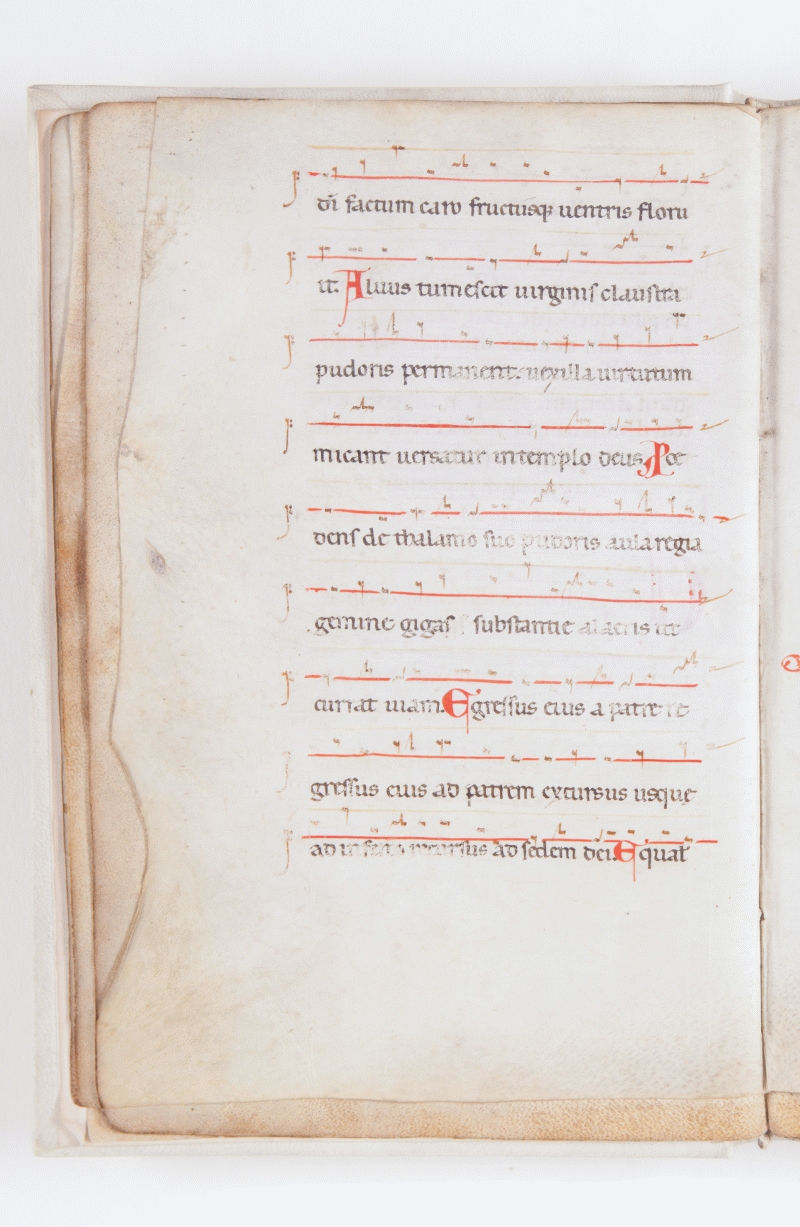 dī factum caro fructusqꝫ uentris floru
it. Aluus tumescit uirginis claustra
pudoris permanent. uexilla uirtutum
micant uersatur in templo deus. Proce
dens de thalamo suo pudoris aula regia
gemine gigas substantie alacris ut
currat uiam. Egressus eius a patre re
gressus eius ad patrem excursus usque
ad inferos recursus ad sedem dei. Equal̄